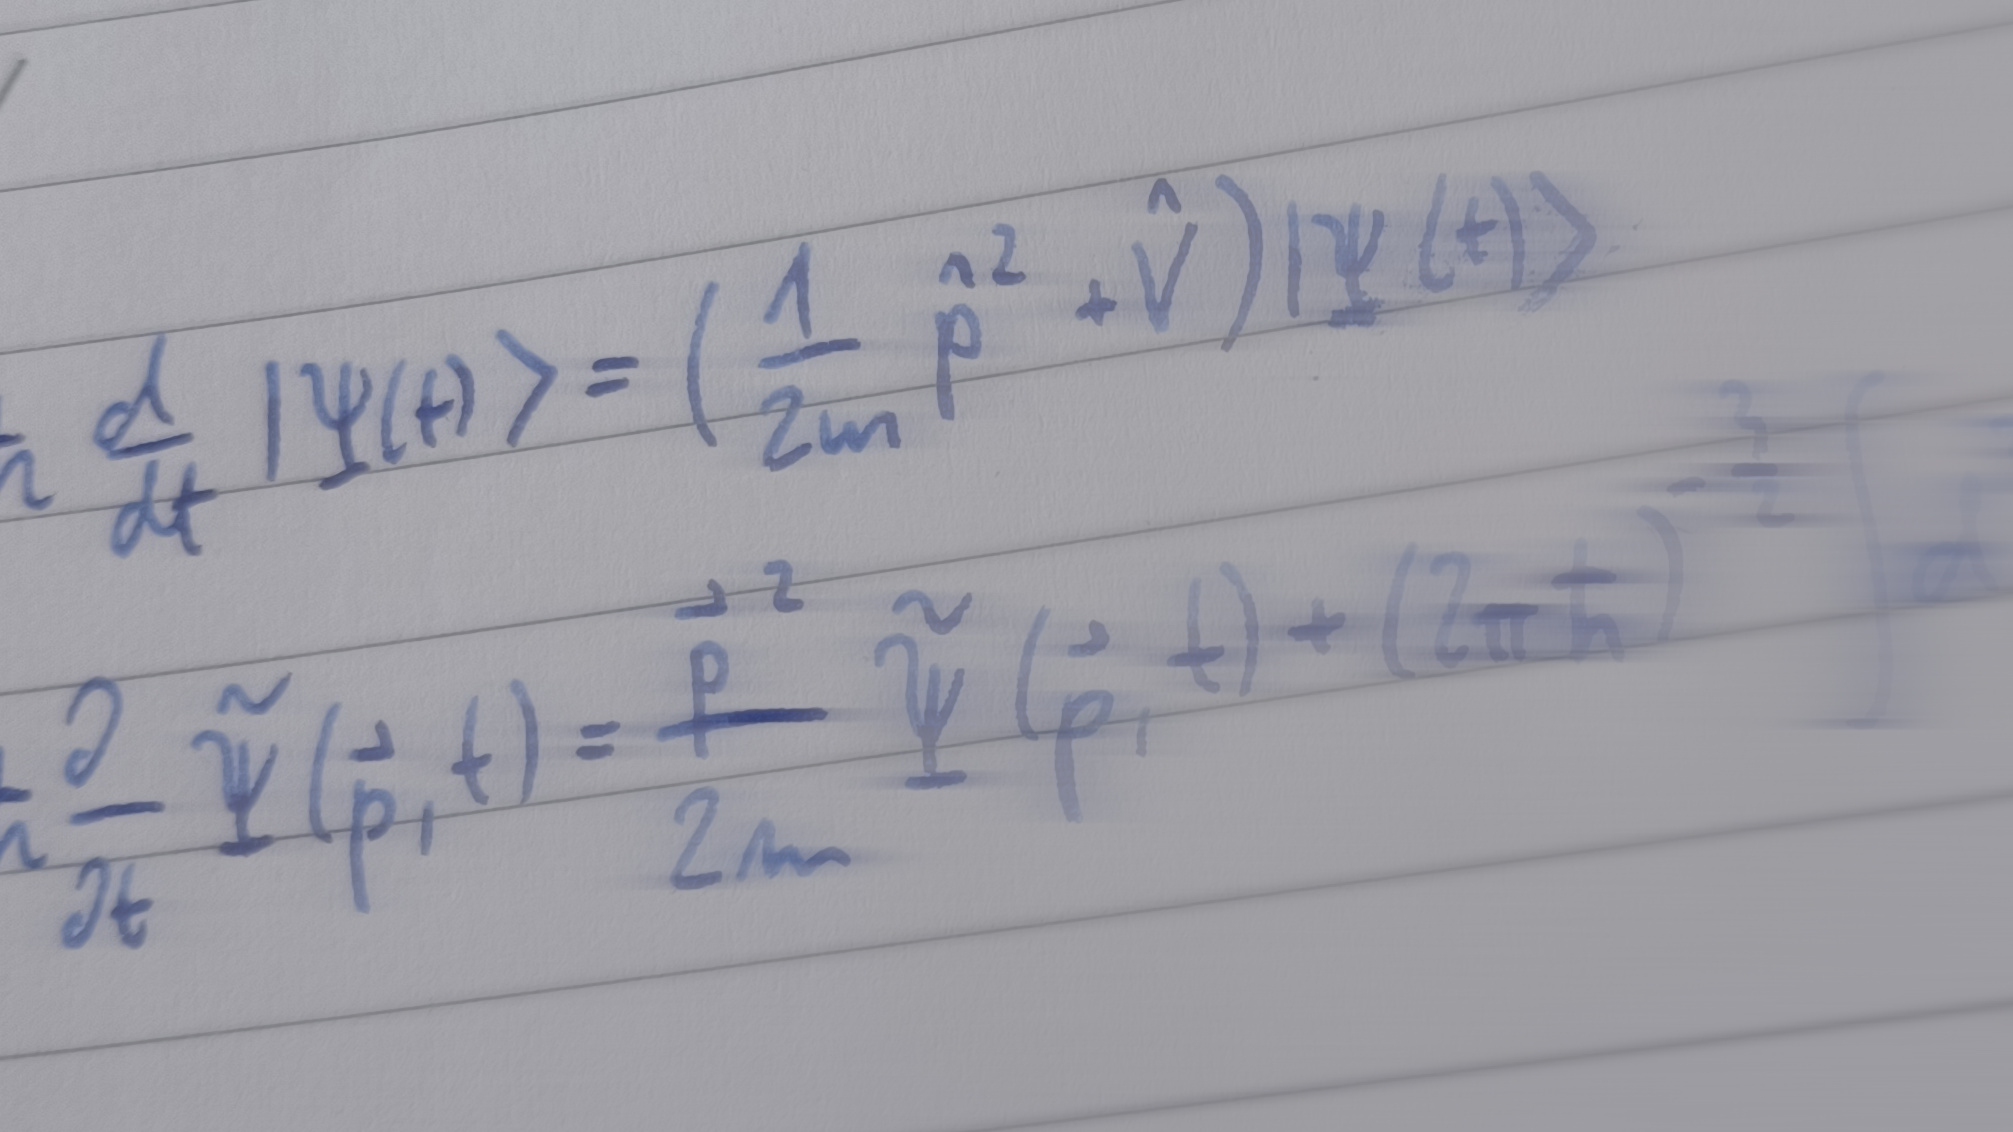 ħ d/dt |Ψ(t)⟩ = (1/2m p̂² + V̂)|Ψ(t)⟩
ħ ∂/∂t Ψ̃(p⃗, t) = p⃗²/2m Ψ̃(p⃗, t) + (2πħ)^(-3/2) ∫ d